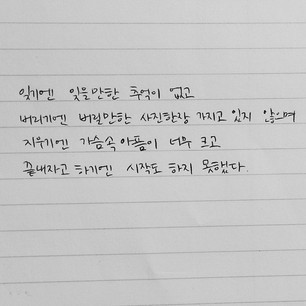 잊기엔 잊을만한 추억이 없고
버리기엔 버릴만한 사진한장 가지고 있지 않으며
지우기엔 가슴속 아픔이 너무 크고
끝내자고 하기엔 시작도 하지 못했다.